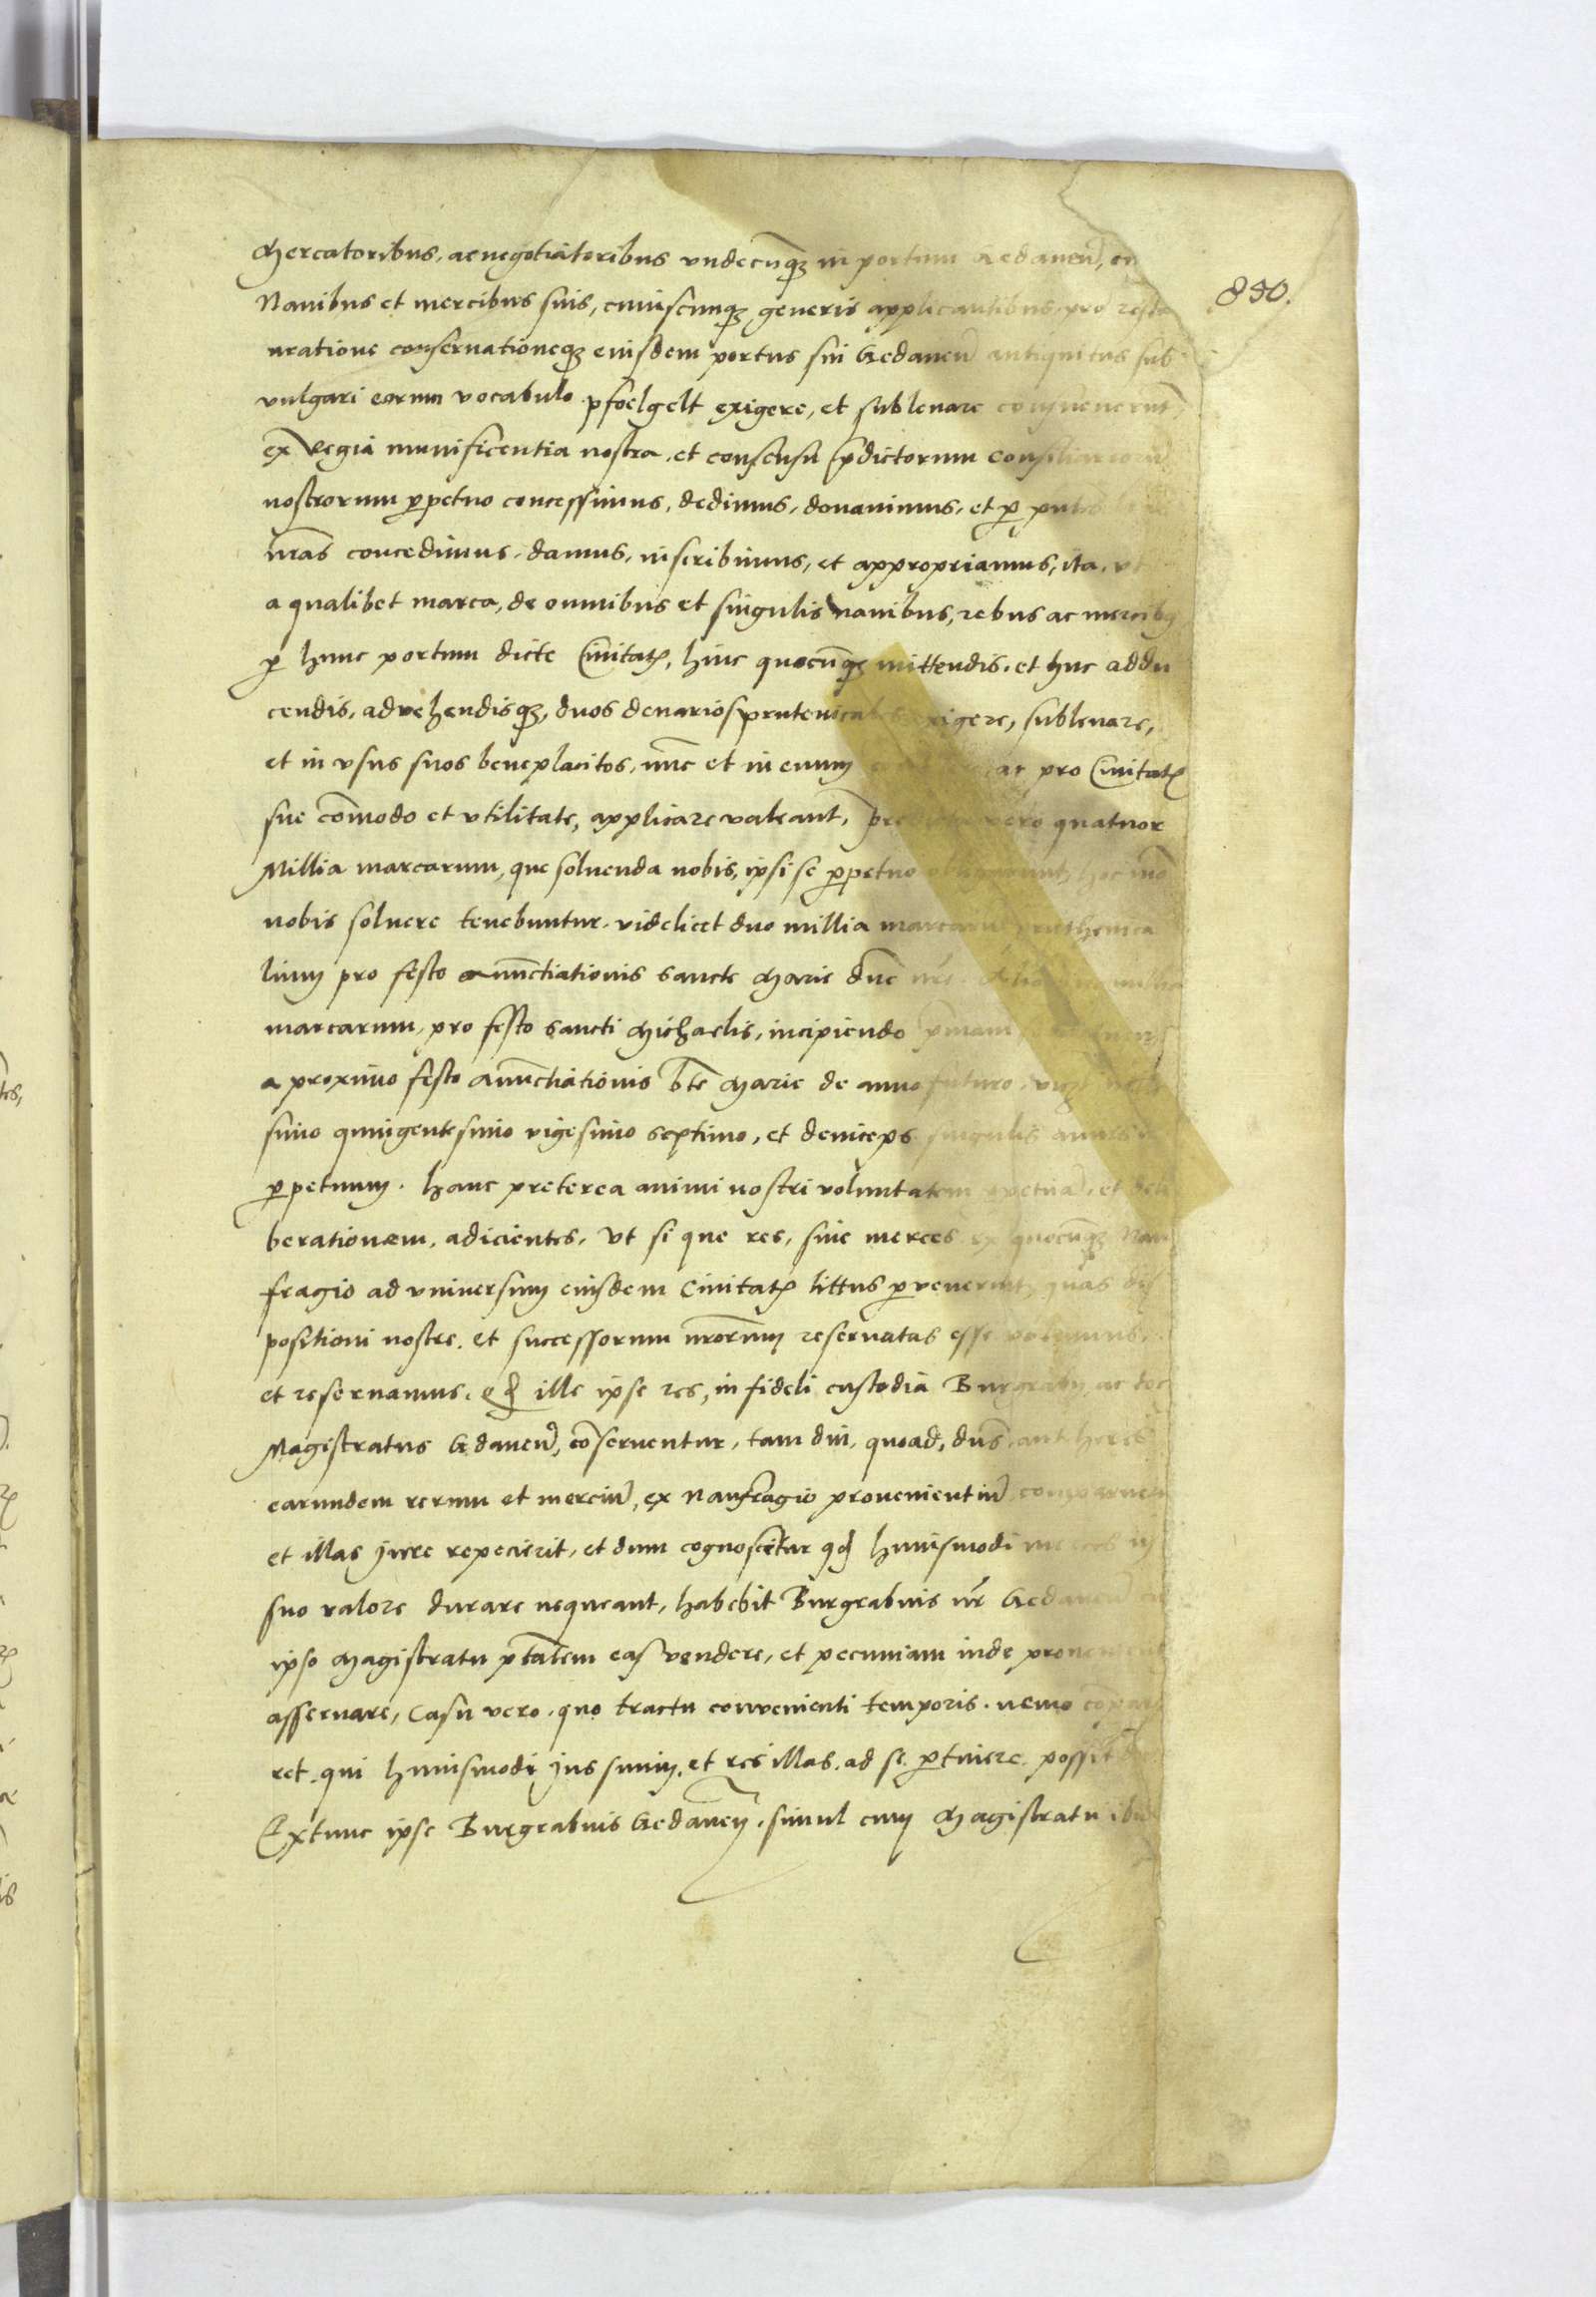 Mercatoribus, ac negotiatoribus vndecu̅q3 in portum Gedanen̅, cu̅
850.
Nauibus et mercibus suis, cuiuscunq3 generis applicantibus, pro resta
uratione conseruationeq3 eiusdem portus sui Gedanen̅ antiquitus sub
vulgari eorum vocabulo pfoelgelt exigere, et subleuare consueuerunt,
ex Regia munificentia nostra, et consensu p̅dictorum Consiliarioru̅
nostrorum p̲petuo concessimus, dedimus, donauimus, et p̲
nr̅as concedimus, damus, inscribimus, et appropriamus, ita, vt
a qualibet marca, de omnibus et singulis nauibus, rebus ac mercibus
p̲ hunc portum dicte Ciuitatis, hinc quocu̅q3 mittendis, et huc addu
cendis, advehendisq3, duos denarios prutenicales exigere, subleuare,
et in vsus suos beneplacitos, nu̅c et in euum ac pro Ciuitatis
sue co̅modo et vtilitate, applicare valeant, predicta vero quatuor
Millia marcarum, que soluenda nobis, ipsi se p̲petuo hoc mo̅
nobis soluere tenebuntur, videlicet duo millia marcaru̅ pruthenica
lium pro festo anu̅ctiationis sancte Marie dn̅e nr̅e. Alia duo millia
marcarum, pro festo sancti Michaelis, incipiendo p̅mam
a proximo festo Anu̅ctiationis bt̅e Marie de anno futuro,
simo quingentesimo vigesimo septimo, et deinceps singulis annis
p̲petuum. Hanc preterea animi nostri voluntatem et deli
berationem, adicientes, Vt si que res, siue merces ex quocu̅q3 Nau
fragio ad vniuersum eiusdem Ciuitatis littus p̲venerint, quas dis
positioni nostre, et successorum nr̅orum reseruatas esse volumus,
et reseruamus, qd̅ ille ipse res, in fideli custodia Burgrabij ac toc
Magistratus Gdanen̅, co̅seruentur, tam diu, quoad, dn̅s, aut heres
earundem rerum et merciu̅, ex Naufragio prouenientiu̅ comparuerit
et illas jure repecierit, et dum cognoscetur qd̅ huiusmodi merces in
suo valore durare nequeant, habebit Burgrabius nr̅ Gedanen̅ cu̅
ipso Magistratu pt̅atem eas vendere, et pecuniam inde
asseruare, Casu vero, quo tractu convenienti temporis, nemo co̅pare
ret, qui huiusmodi jus suum, et res illas, ad se p̲tinere, possit
Extunc ipse Burgrabius Gedanen̅, simul cum Magistratu ibid